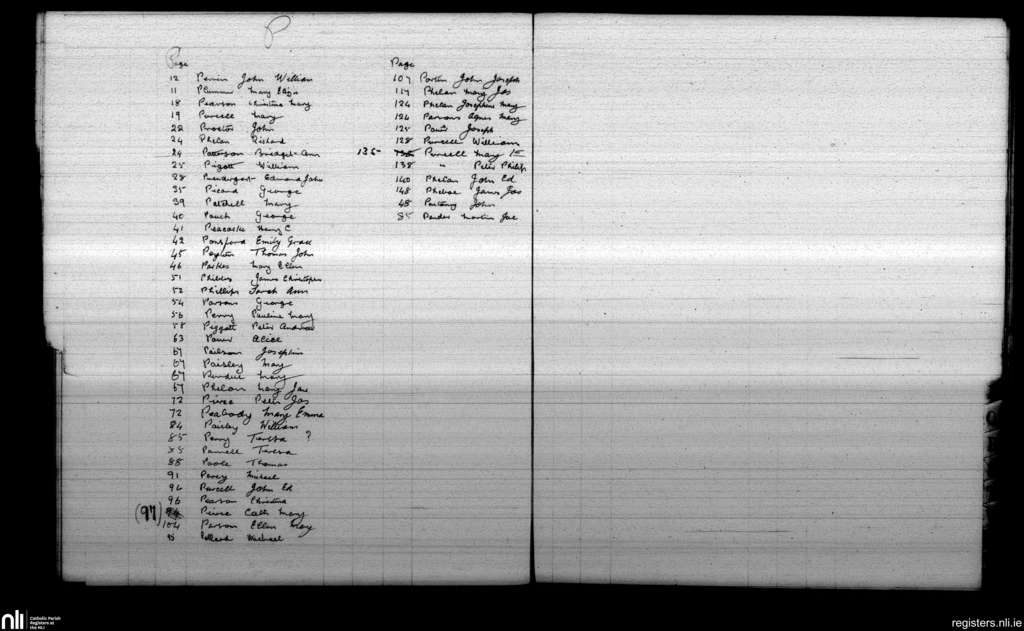 P
Page
12 Perrin John William
11 Plummer Mary Eliza
18 Pearson Christina Mary
19 Purcell Mary
22 Proctor John
24 Phelan Richard
24 Patterson Bridget Ann
25 Pigott William
28 Prendergast Edmond John
35 Picard George
39 Patchell Mary
40 Pauch George
41 Peacocke Henry C
42 Ponsford Emily Grace
45 Thomas John
46 Parkes Mary Ellen
51 Phibbs James Christopher
52 Phillips Sarah Ann
54 Parsons George
56 Perry Pauline Mary
58 Piggott Peter Andrew
63 Power Alice
67 Josephine
67 Paisley Mary
67 Purdue Mary
67 Phelan Mary Jane
72 Pierce Peter Jos
72 Peabody Mary Emma
84 Paisley William
85 Perry Teresa ?
85 Parnell Teresa
88 Poole Thomas
91 Percy Michael
94 Purcell John Ed
96 Pearson Christina
(97) Pierce Cath Mary
104 Parson Ellen May
95 Pollard Michael
Page
107 Porter John Joseph
117 Phelan Mary Jos
124 Phelan Josephine Mary
124 Parsons Agnes Mary
125 Joseph
128 Purcell William
135 Purcell Mary
138 " Peter Philip
140 Phelan John Ed
148 Phelan James Jos
48 John
85 Martin Jas
nli
Catholic Parish
Registers at
the NLI
registers.nli.ie